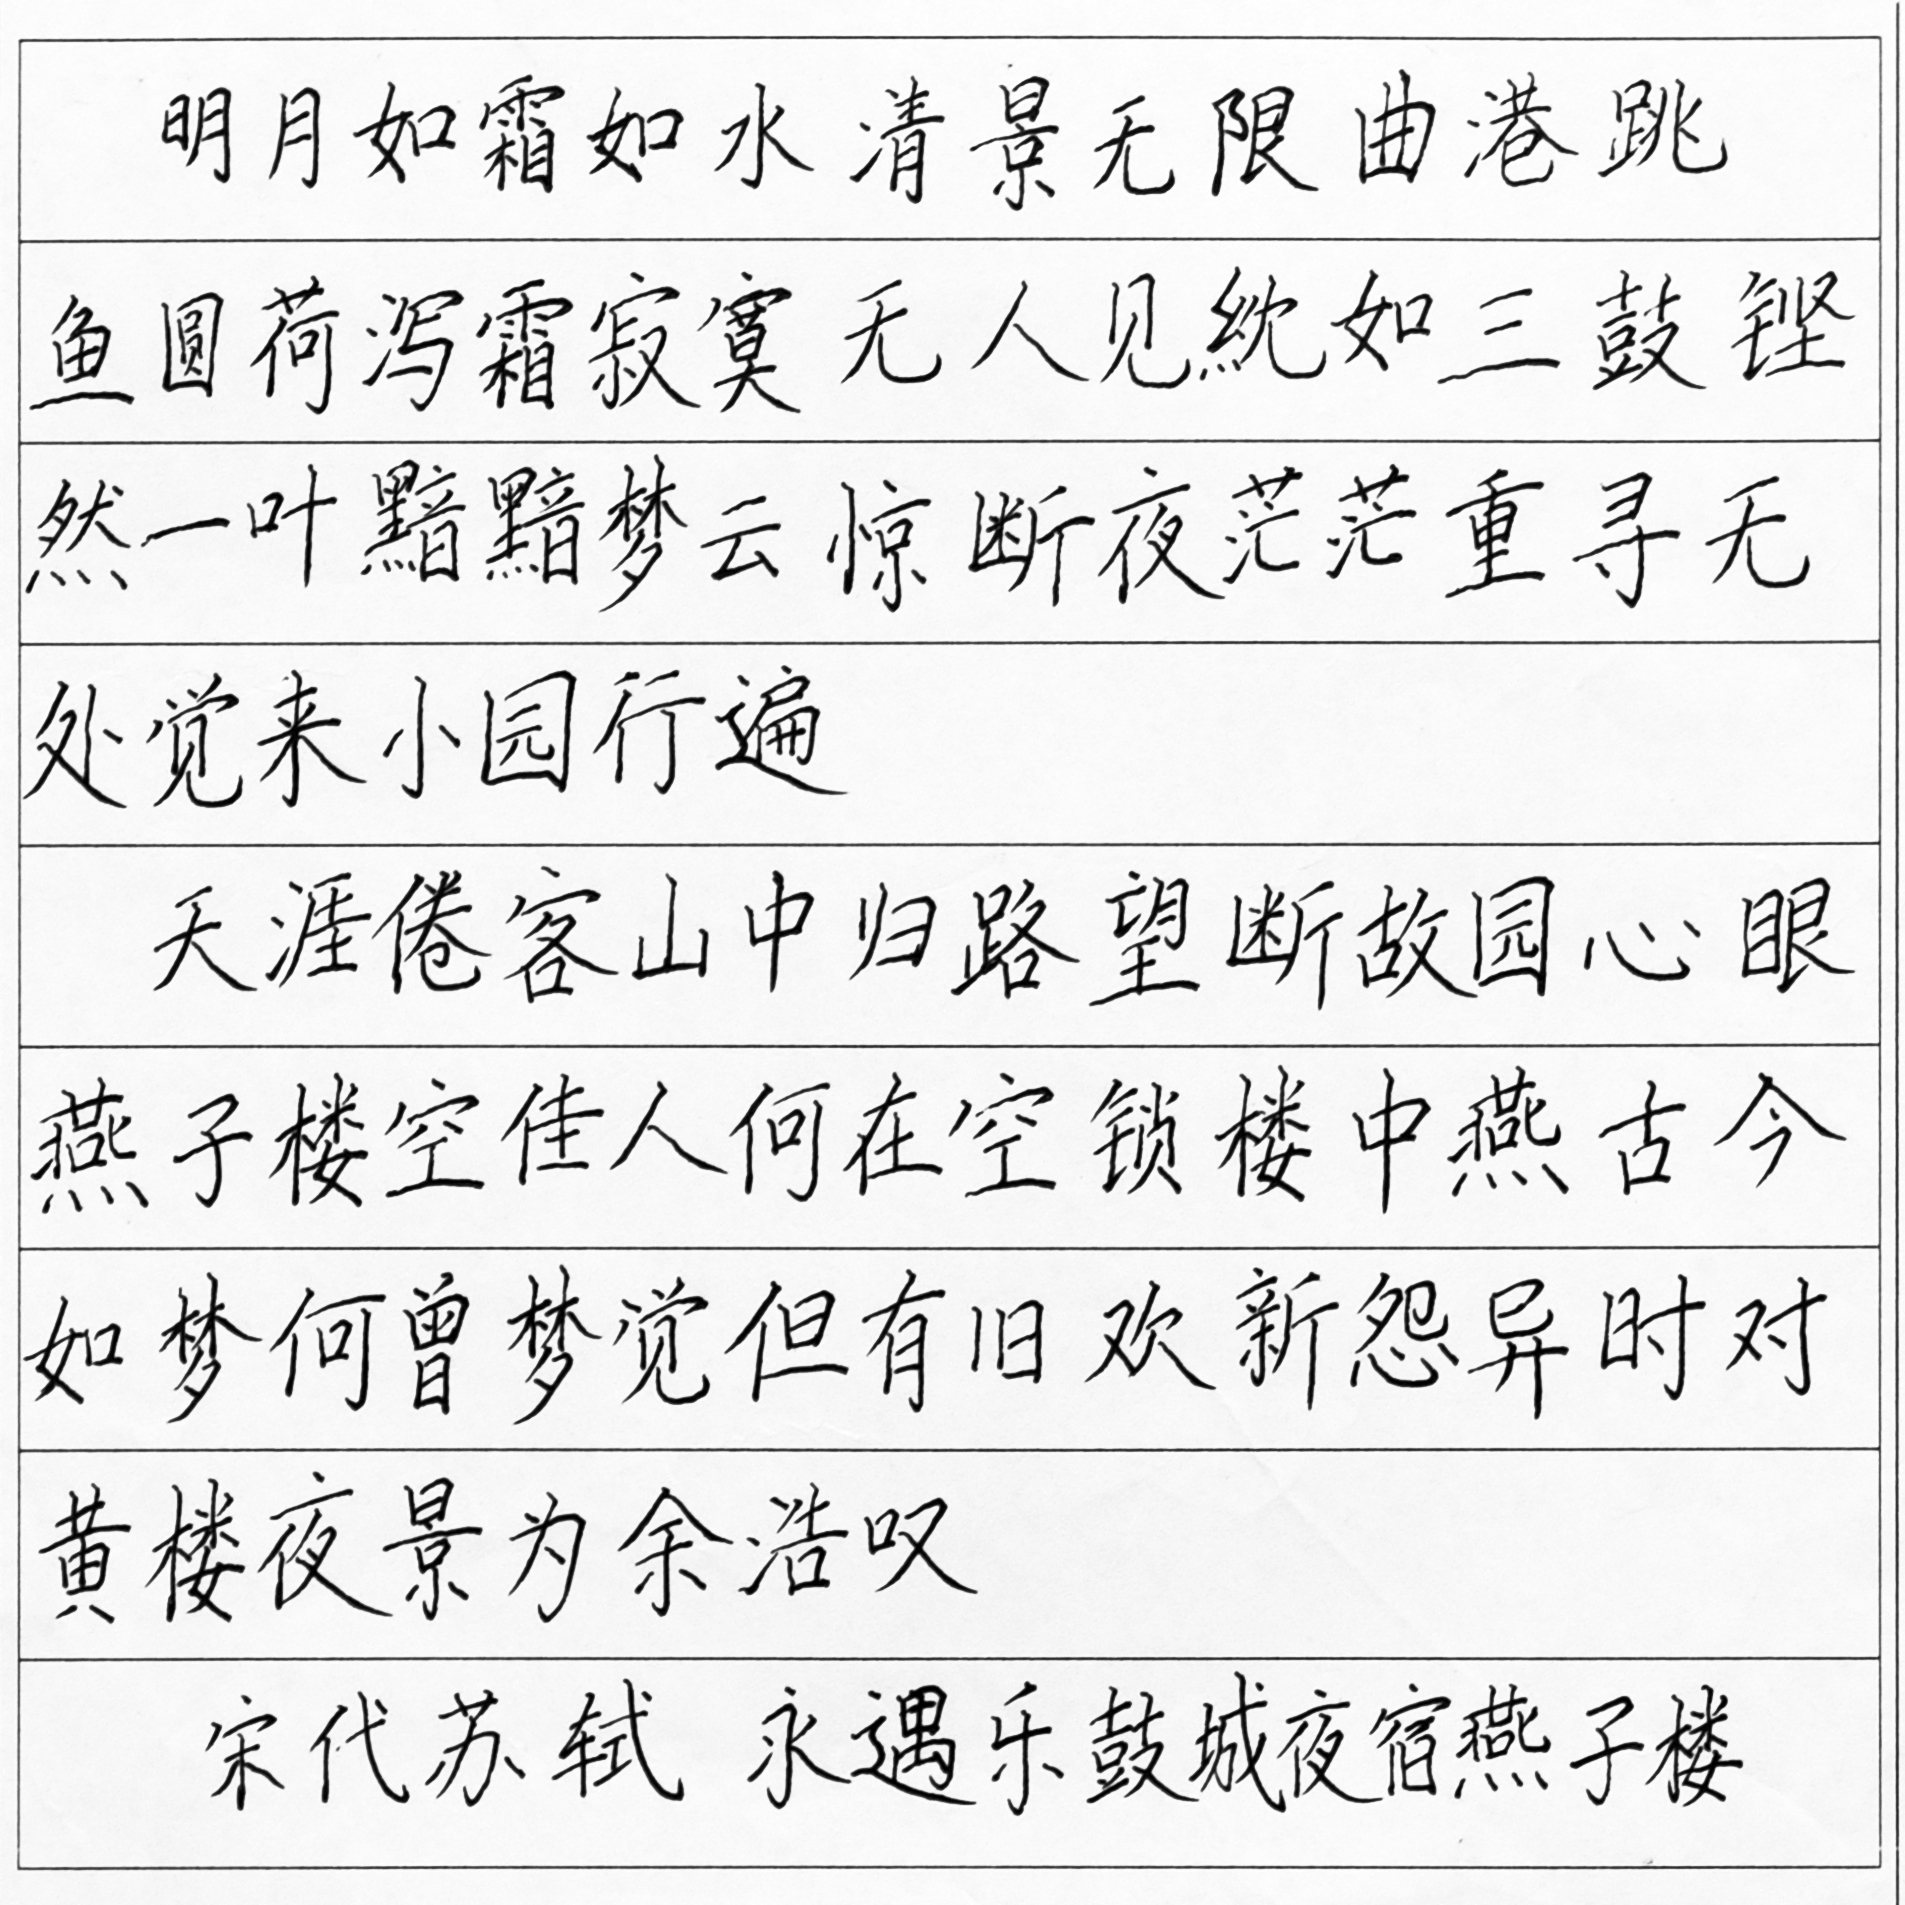 明月如霜如水清景无限曲港跳
鱼圆荷泻霜寂寞无人见紞如三鼓铿
然一叶黯黯梦云惊断夜茫茫重寻无
处觉来小园行遍
天涯倦客山中归路望断故园心眼
燕子楼空佳人何在空锁楼中燕古今
如梦何曾梦觉但有旧欢新怨异时对
黄楼夜景为余浩叹
宋代苏轼 永遇乐鼓城夜宿燕子楼